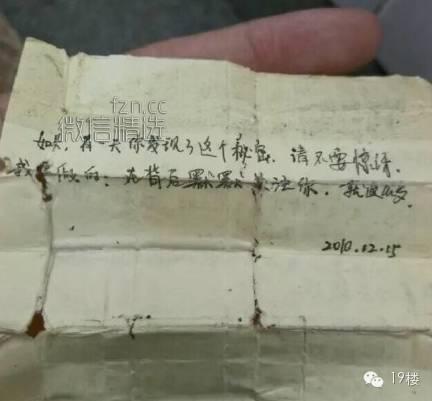 fzn.cc
微信精选
如果有一天你发现了这个秘密，请不要惊讶。
我 的，在背后默默关注你，就这么多，
2010.12.15
19楼